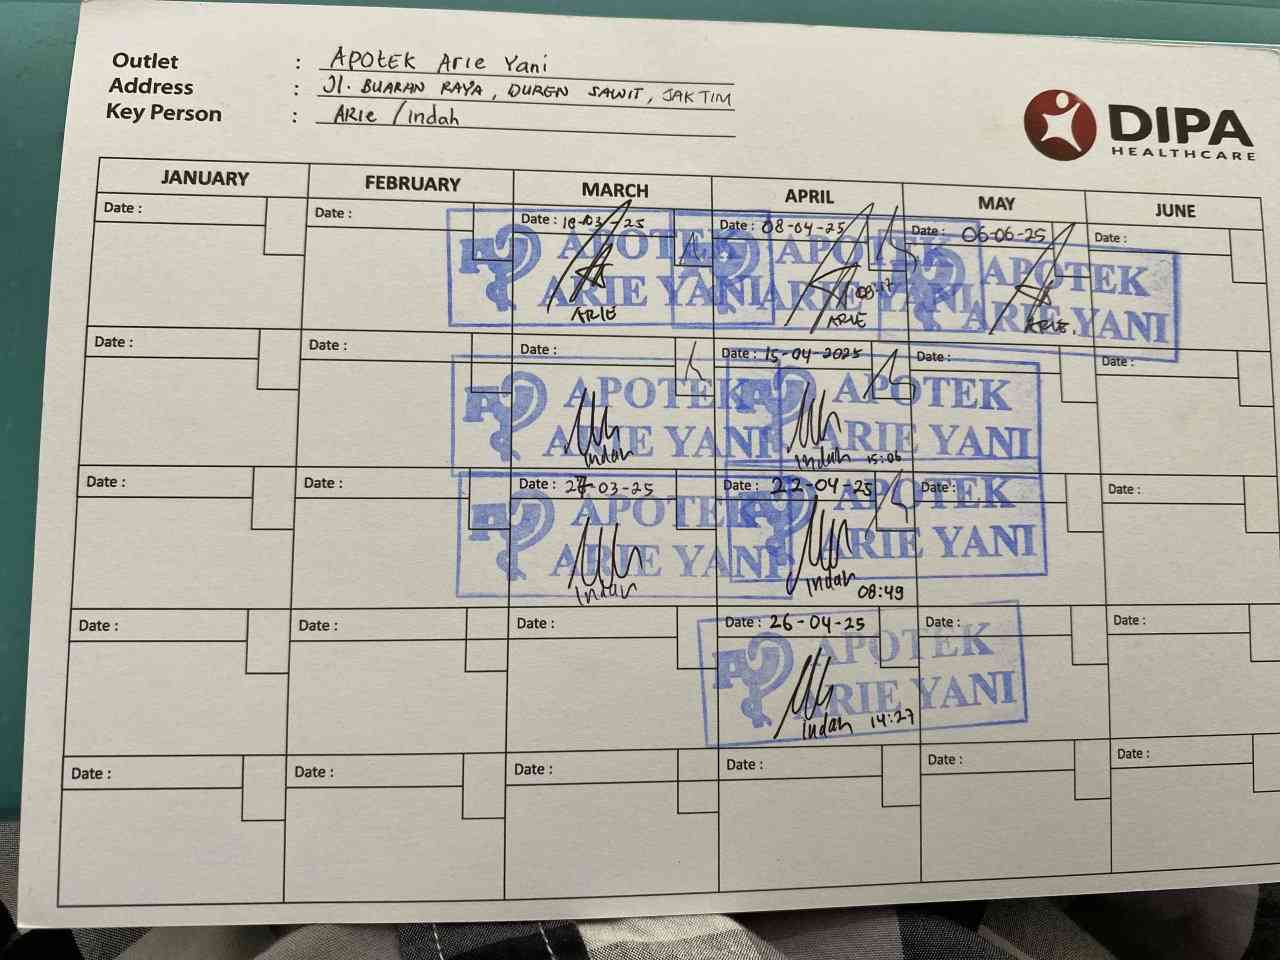 Outlet : APOTEK Arie Yani
Address : Jl. BUARAN RAYA, DUREN SAWIT, JAKTIM
Key Person : ARIE / Indah
DIPA
HEALTHCARE
JANUARY FEBRUARY MARCH APRIL MAY JUNE
Date : Date : Date : 18-03-25 Date : 08-04-25 Date : 06-06-25 Date :
APOTEK APOTEK APOTEK
ARIE YANI ARIE YANI ARIE YANI
08:17
ARIE ARIE ARIE.
Date : Date : Date : Date : 15-04-2025 Date : Date :
APOTEK APOTEK
ARIE YANI ARIE YANI
Indah Indah 15:06
Date : Date : Date : 27-03-25 Date : 22-04-25 Date : Date :
APOTEK APOTEK
ARIE YANI ARIE YANI
Indah Indah 08:49
Date : Date : Date : Date : 26-04-25 Date : Date :
APOTEK
ARIE YANI
Indah 14:27
Date : Date : Date : Date : Date : Date :